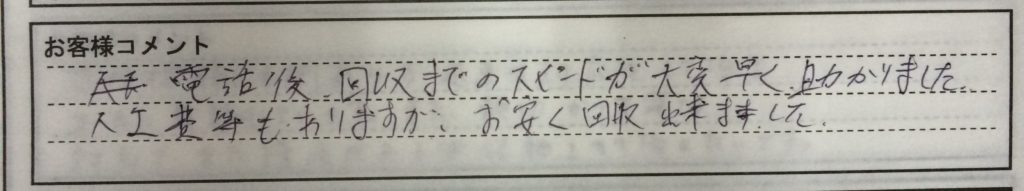 お客様コメント
電話後、回収までのスピードが大変早く助かりました。
人工費等もありますが、お安く回収出来ました。